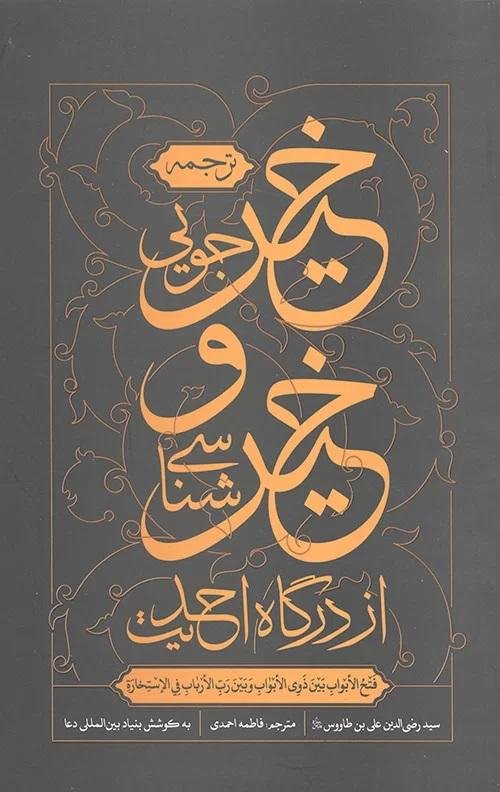 ترجمه
خیر جویی
و
خیر شناسی
از درگاه احدیت
فَتْحُ الأَبْوابِ بَیْنَ ذَوِی الأَلْبَابِ وَبَیْنَ رَبِّ الأَرْبَابِ فِی الإِسْتِخَارَةِ
سید رضی‌الدین علی بن طاووس | مترجم: فاطمه احمدی | به کوشش بنیاد بین‌المللی دعا